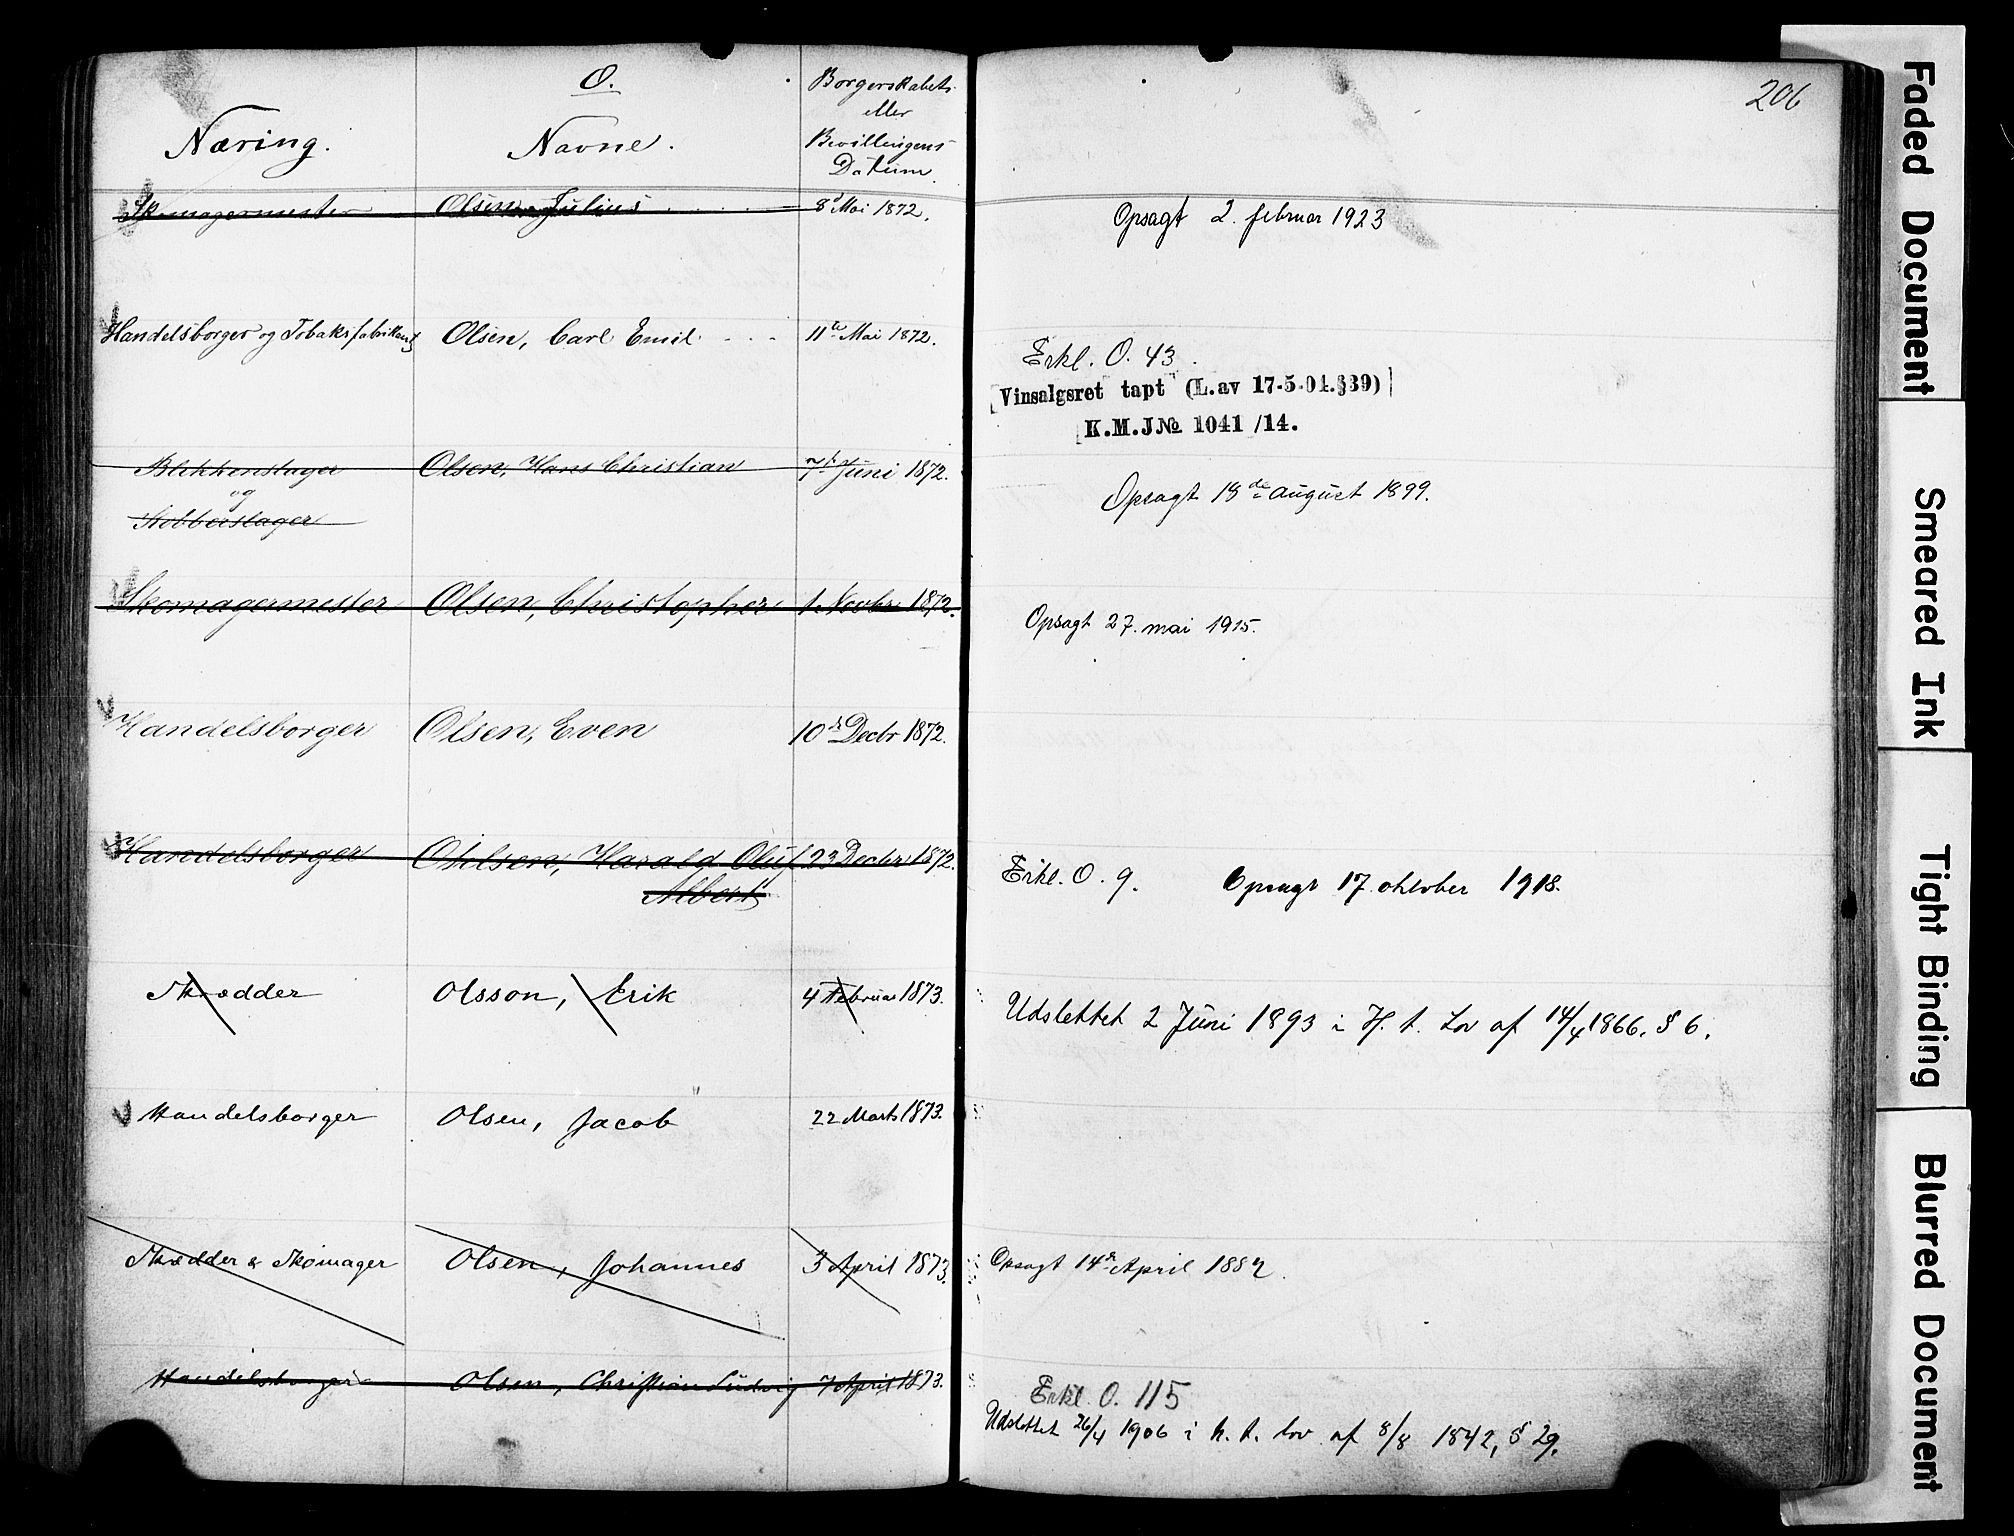 O.
Næring.
Navne.
Borgerskabets
eller
Bevillingens
Datum.
206
Skomagermester Olsen, Julius 8d Mai 1872. Opsagt 2. februar 1923
Handelsborger og Tobaksfabrikant Olsen, Carl Emil 11te Mai 1872.
Erkl. O. 43.
Vinsalgsret tapt (L.av 17-5-04.§39)
K.M.J№ 1041/14.
Blikkenslager Olsen, Hans Christian 7de Juni 1872.
og
Kobberslager
Opsagt 18de august 1899.
Skomagermester Olsen, Christopher 1. Novbr 1872. Opsagt 27. mai 1915.
Handelsborger Olsen, Even 10d Decbr 1872.
Handelsborger Ohlsen, Harald Oluf 23 Decbr 1872.
Albert
Erkl. O. 9. Opsagt 17. oktober 1918.
Skrædder Olsson, Erik 4 Februar 1873. Udslettet 2 Juni 1893 i H. t. Lov af 14/4 1866. § 6.
Handelsborger Olsen, Jacob 22 Marts 1873.
Skrædder & Skomager Olsen, Johannes 3 April 1873. Opsagt 14d April 1882.
Handelsborger Olsen, Christian Ludvig 7 April 1873.
Erkl. O. 115
Udslettet 26/4 1906 i h. t. lov af 8/8 1842, § 29.
Faded Document
Smeared Ink
Tight Binding
Blurred Document